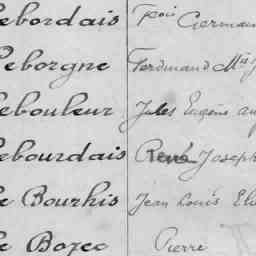 Lebordais Germain
Leborgne Ferdinand
Lebouleur Jules Eugène
Lebourdais René Joseph
Le Bourhis Jean Louis
Le Bozec Pierre